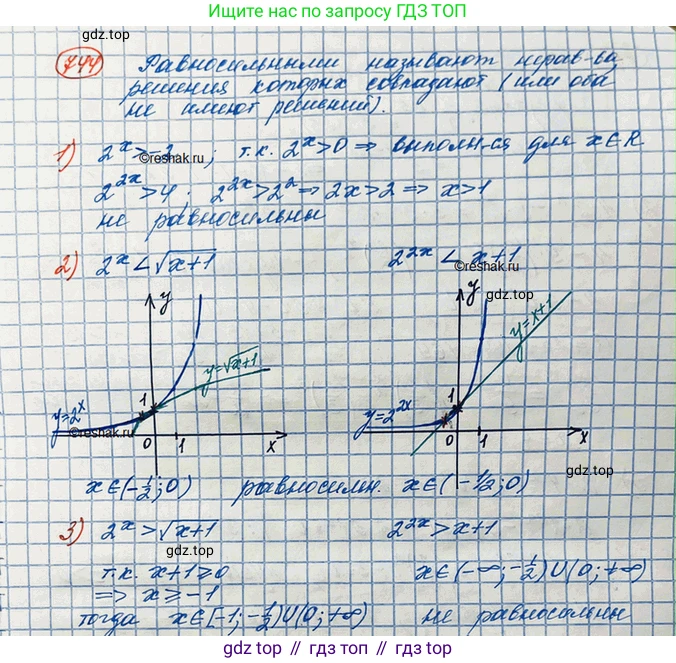 Ищите решение по запросу ГДЗ ТОП
gdz top
744 Равносильными называют нерав-ва
решения которых совпадают (или оба
не имеют решений).
1) 2^x > -2 ; т.к. 2^x > 0 ⇒ выполн-ся для x∈R
©reshak.ru
2^{2x} > 4 ; 2^{2x} > 2^2 ⇒ 2x > 2 ⇒ x > 1
не равносильны
2) 2^x < √x+1 2^{2x} < x+1
©reshak.ru
gdz top
y y
y=√x+1 y=x+1
1 1
y=2^x y=2^{2x}
©reshak.ru
0 1 x 0 1 x
gdz top
x∈(-1/2; 0) равносильн. x∈(-1/2; 0)
3) 2^x > √x+1 2^{2x} > x+1
gdz top
т.к. x+1 ≥ 0 x∈(-∞; -1/2)∪(0; +∞)
⇒ x ≥ -1
тогда x∈[-1; -1/2)∪(0; +∞) не равносильны
gdz top
©reshak.ru
gdz.top // gdz топ // гдз.top // гдз топ